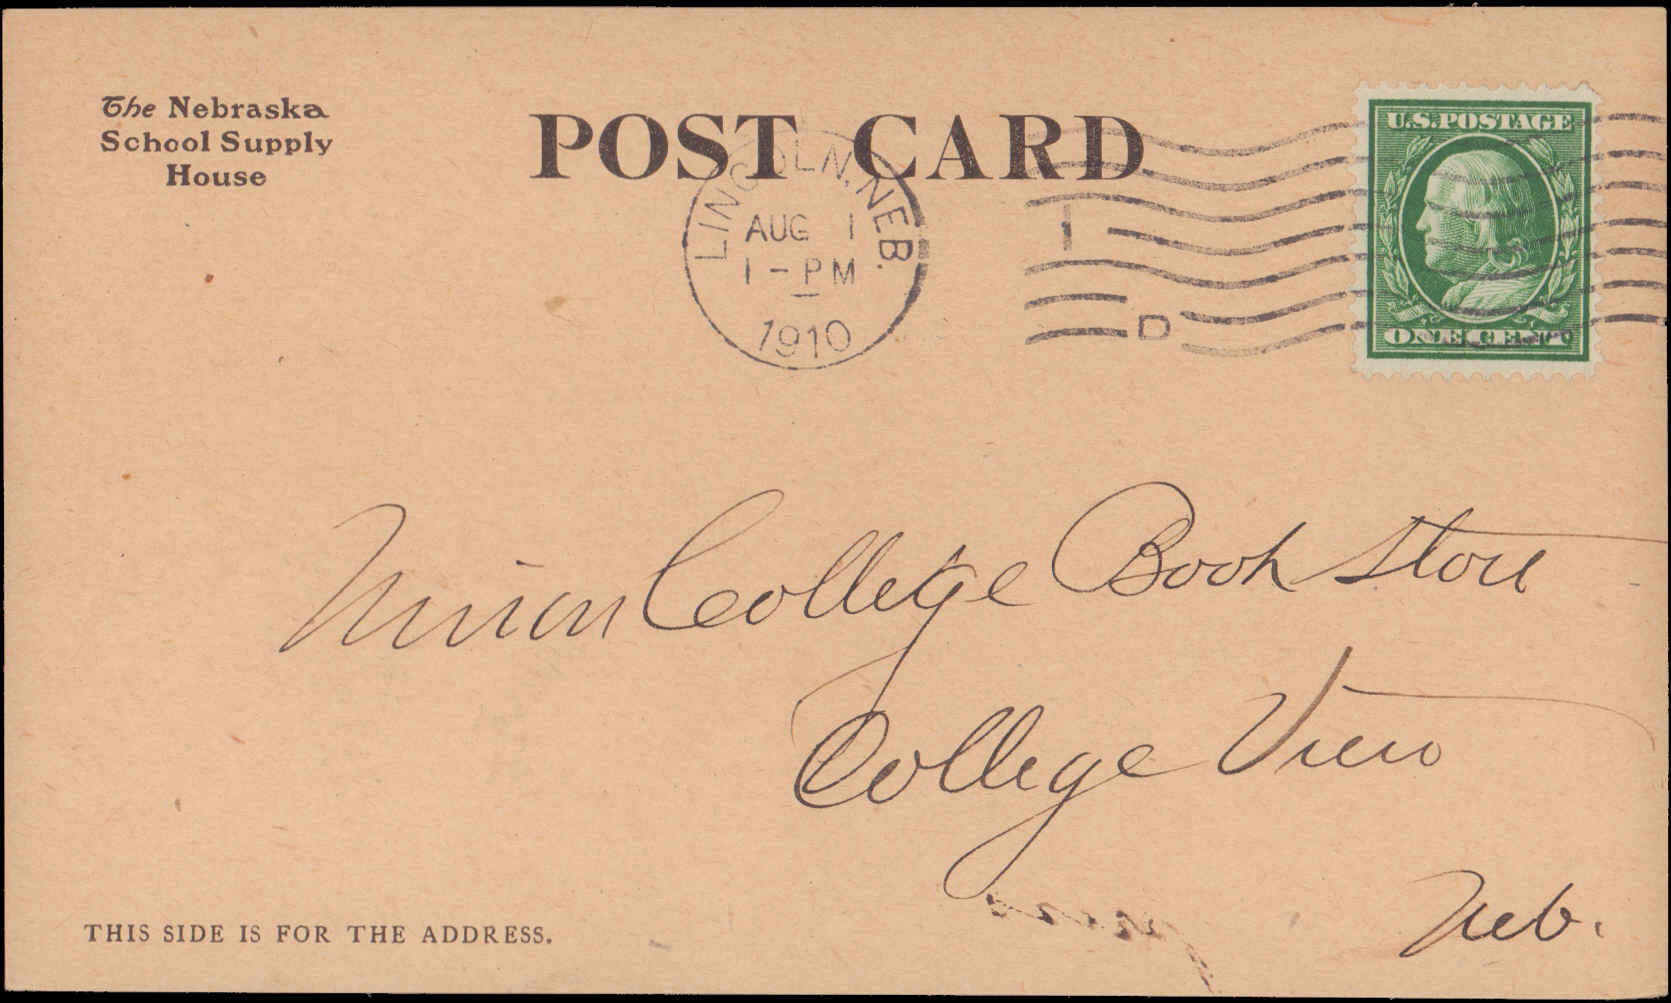 The Nebraska
School Supply
House
POST CARD
LINCOLN, NEB.
AUG 1
1 - PM
1910
1
D
U.S. POSTAGE
ONE CENT
Union College Book Store
College View
Neb.
THIS SIDE IS FOR THE ADDRESS.